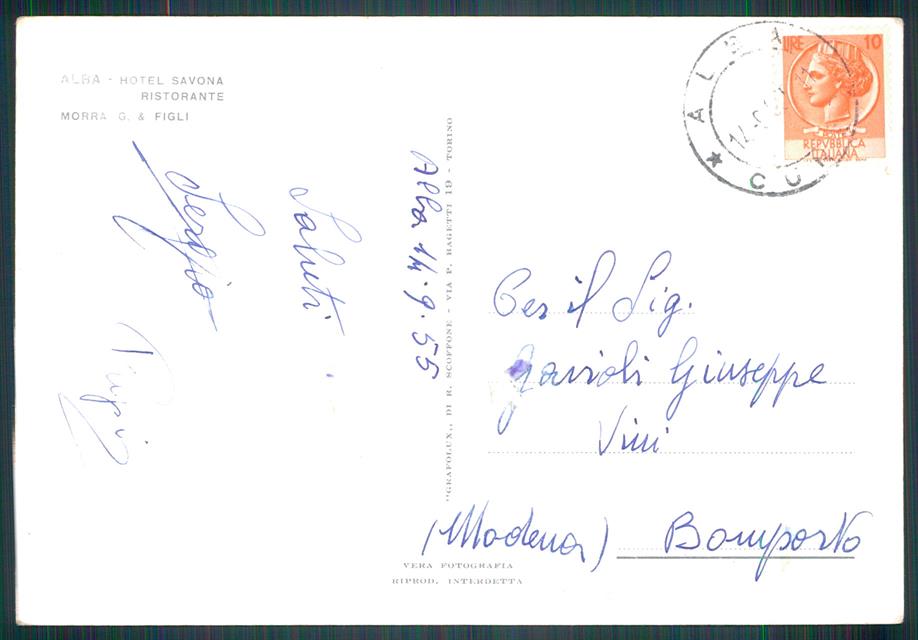 ALBA - HOTEL SAVONA
RISTORANTE
MORRA G. & FIGLI
Alba 14.9.55
Saluti
Sergio
"GRAFOLUX„ DI R. SCOFFONE - VIA P. BAGETTI 19 - TORINO
ALBA
CU
LIRE 10
REPVBBLICA
ITALIANA
Per il Sig.
Gavioli Giuseppe
Vini
(Modena) Bomporto
VERA FOTOGRAFIA
RIPROD. INTERDETTA